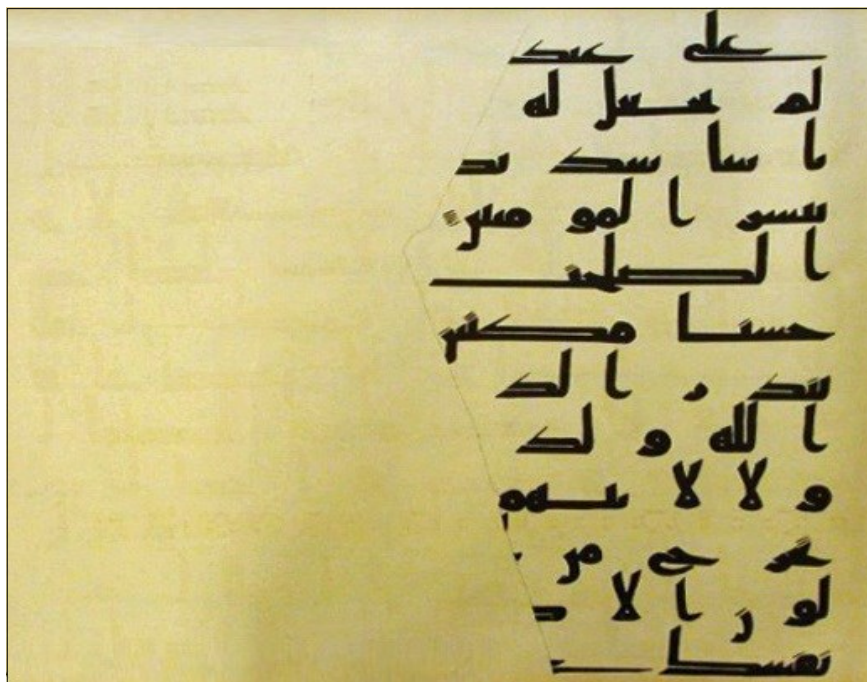 على عبد
لم يجعل له
با سا شديد يد
يبشر ا لمو منين
ا لصلحت
حسنا مكثين
ينذ ر ا لذ
ا لله و لد
و لا لا بهم
تخر ج من
لو ن ا لا كذ
نفسك